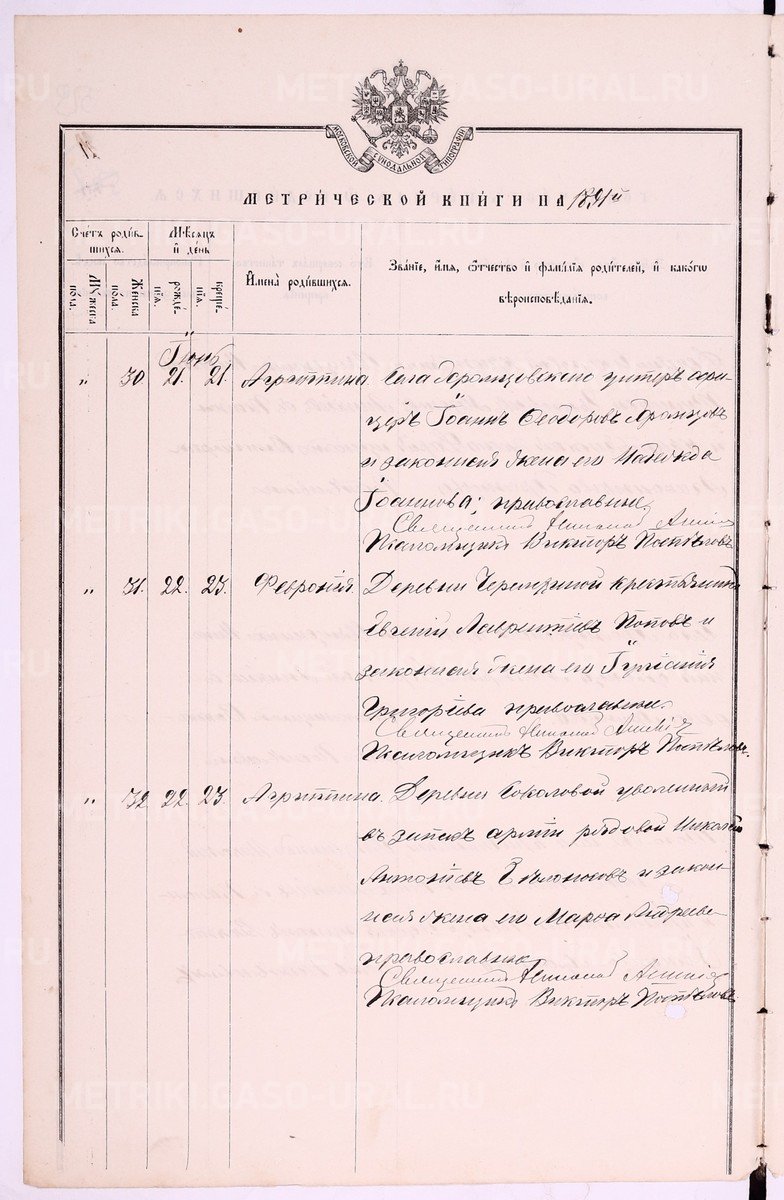 МОСКОВСКОЙ СѴНОДАЛЬНОЙ ТИПОГРАФІИ
МЕТРИ́ЧЕСКОЙ КНИ́ГИ НА 1891й
Счетъ роди́вшихся.
Мѣсяцъ и день
Имена̀ роди́вшихся.
Зва́ніе, и́мя, ѻ҆́тчество и҆ фамѝлїя роди́телей, и҆ како́гѡ вѣроисповѣ́данїя.
Му́жеска по́ла.
Же́нска по́ла.
рожде́нїя.
креще́нїя.
Іюнь
" 30. 21. 21. Агриппина. Села унтеръ офи-
церъ Іоаннъ Ѳеодоровъ
и законная жена его Надежда
Іоаннова; православные
Священникъ
Псаломщикъ Викторъ Поспѣловъ
" 31. 22. 23. Февронія. Деревни крестьянинъ
Евгеній Лаврентіевъ Поповъ и
законная жена его Іуліанія
Григоріева православные.
Священникъ
Псаломщикъ Викторъ Поспѣловъ.
" 32. 22. 23. Агриппина. Деревни Соколовой уволенный
въ запасъ арміи рядовой Николай
Антоніевъ и закон-
ная жена его Марѳа Андреева
православные
Священникъ
Псаломщикъ Викторъ Поспѣловъ.
METRIKI.GASO-URAL.RU